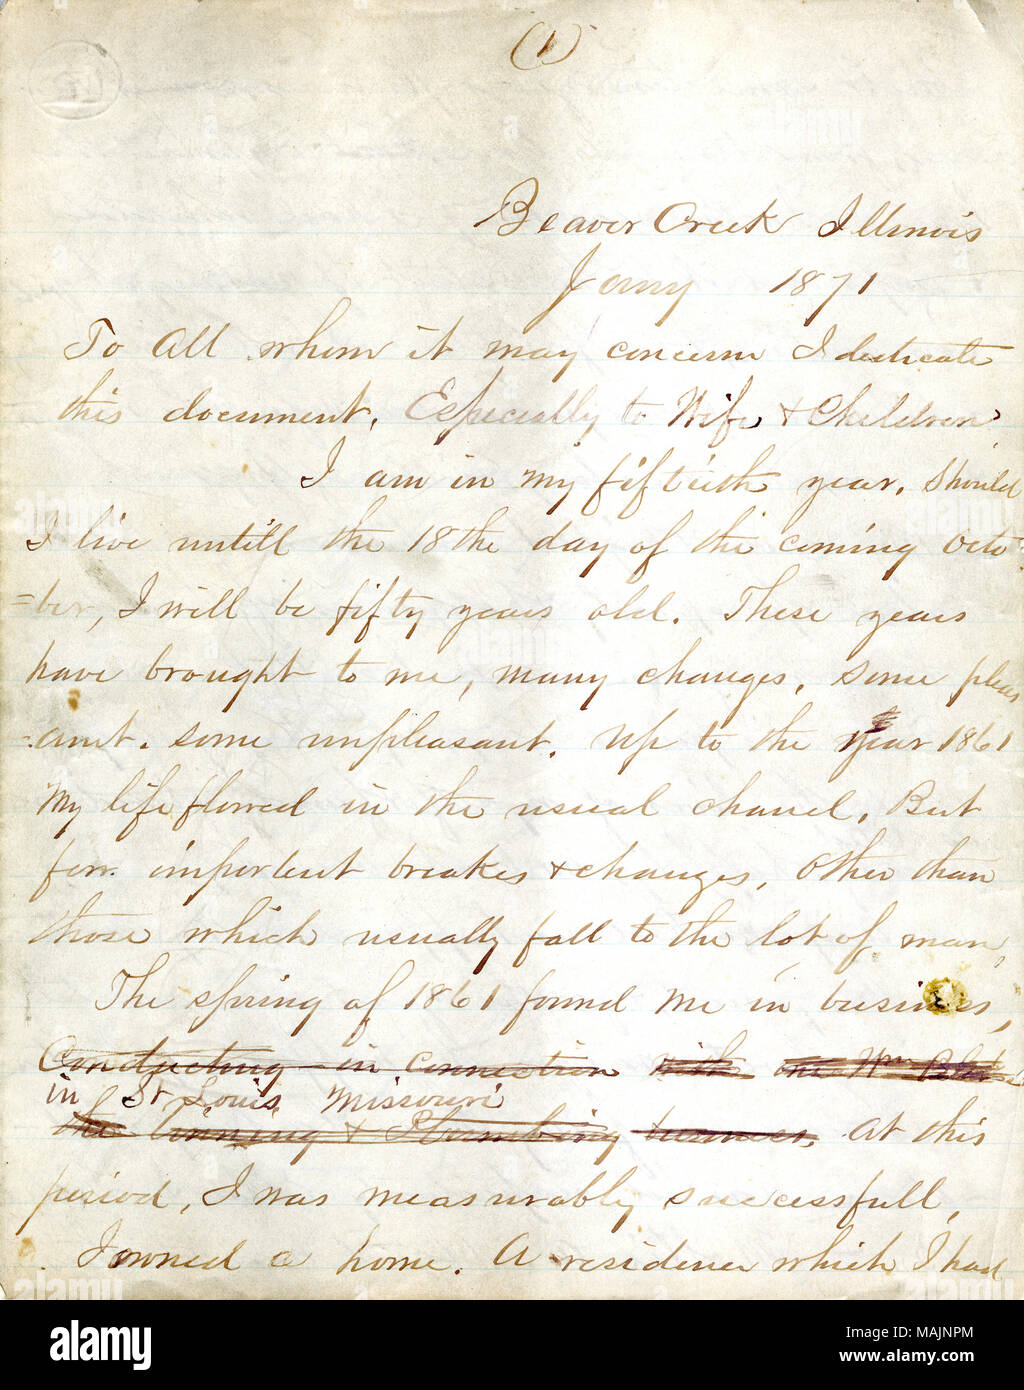 (1)
Beaver Creek Illinois
Jany 1871
To All whom it may concern I dedicate
this document. Especially to Wife & Children.
I am in my fiftieth year. Should
I live untill the 18the day of the coming Octo
=ber, I will be fifty years old. These years
have brought to me, many changes, some pleas
=ant. some unpleasant. Up to the year 1861
My life flowed in the usual chanel. But
few important breakes & changes, other than
those which usually fall to the lot of man,
The spring of 1861 found me in business,
Conducting in connection with one Wm
in St Louis, Missouri
the Tinning & Plumbing business, at this
period, I was measurably successfull,
I owned a home. A residence which I had
alamy
Image ID: MAJNPM
www.alamy.com